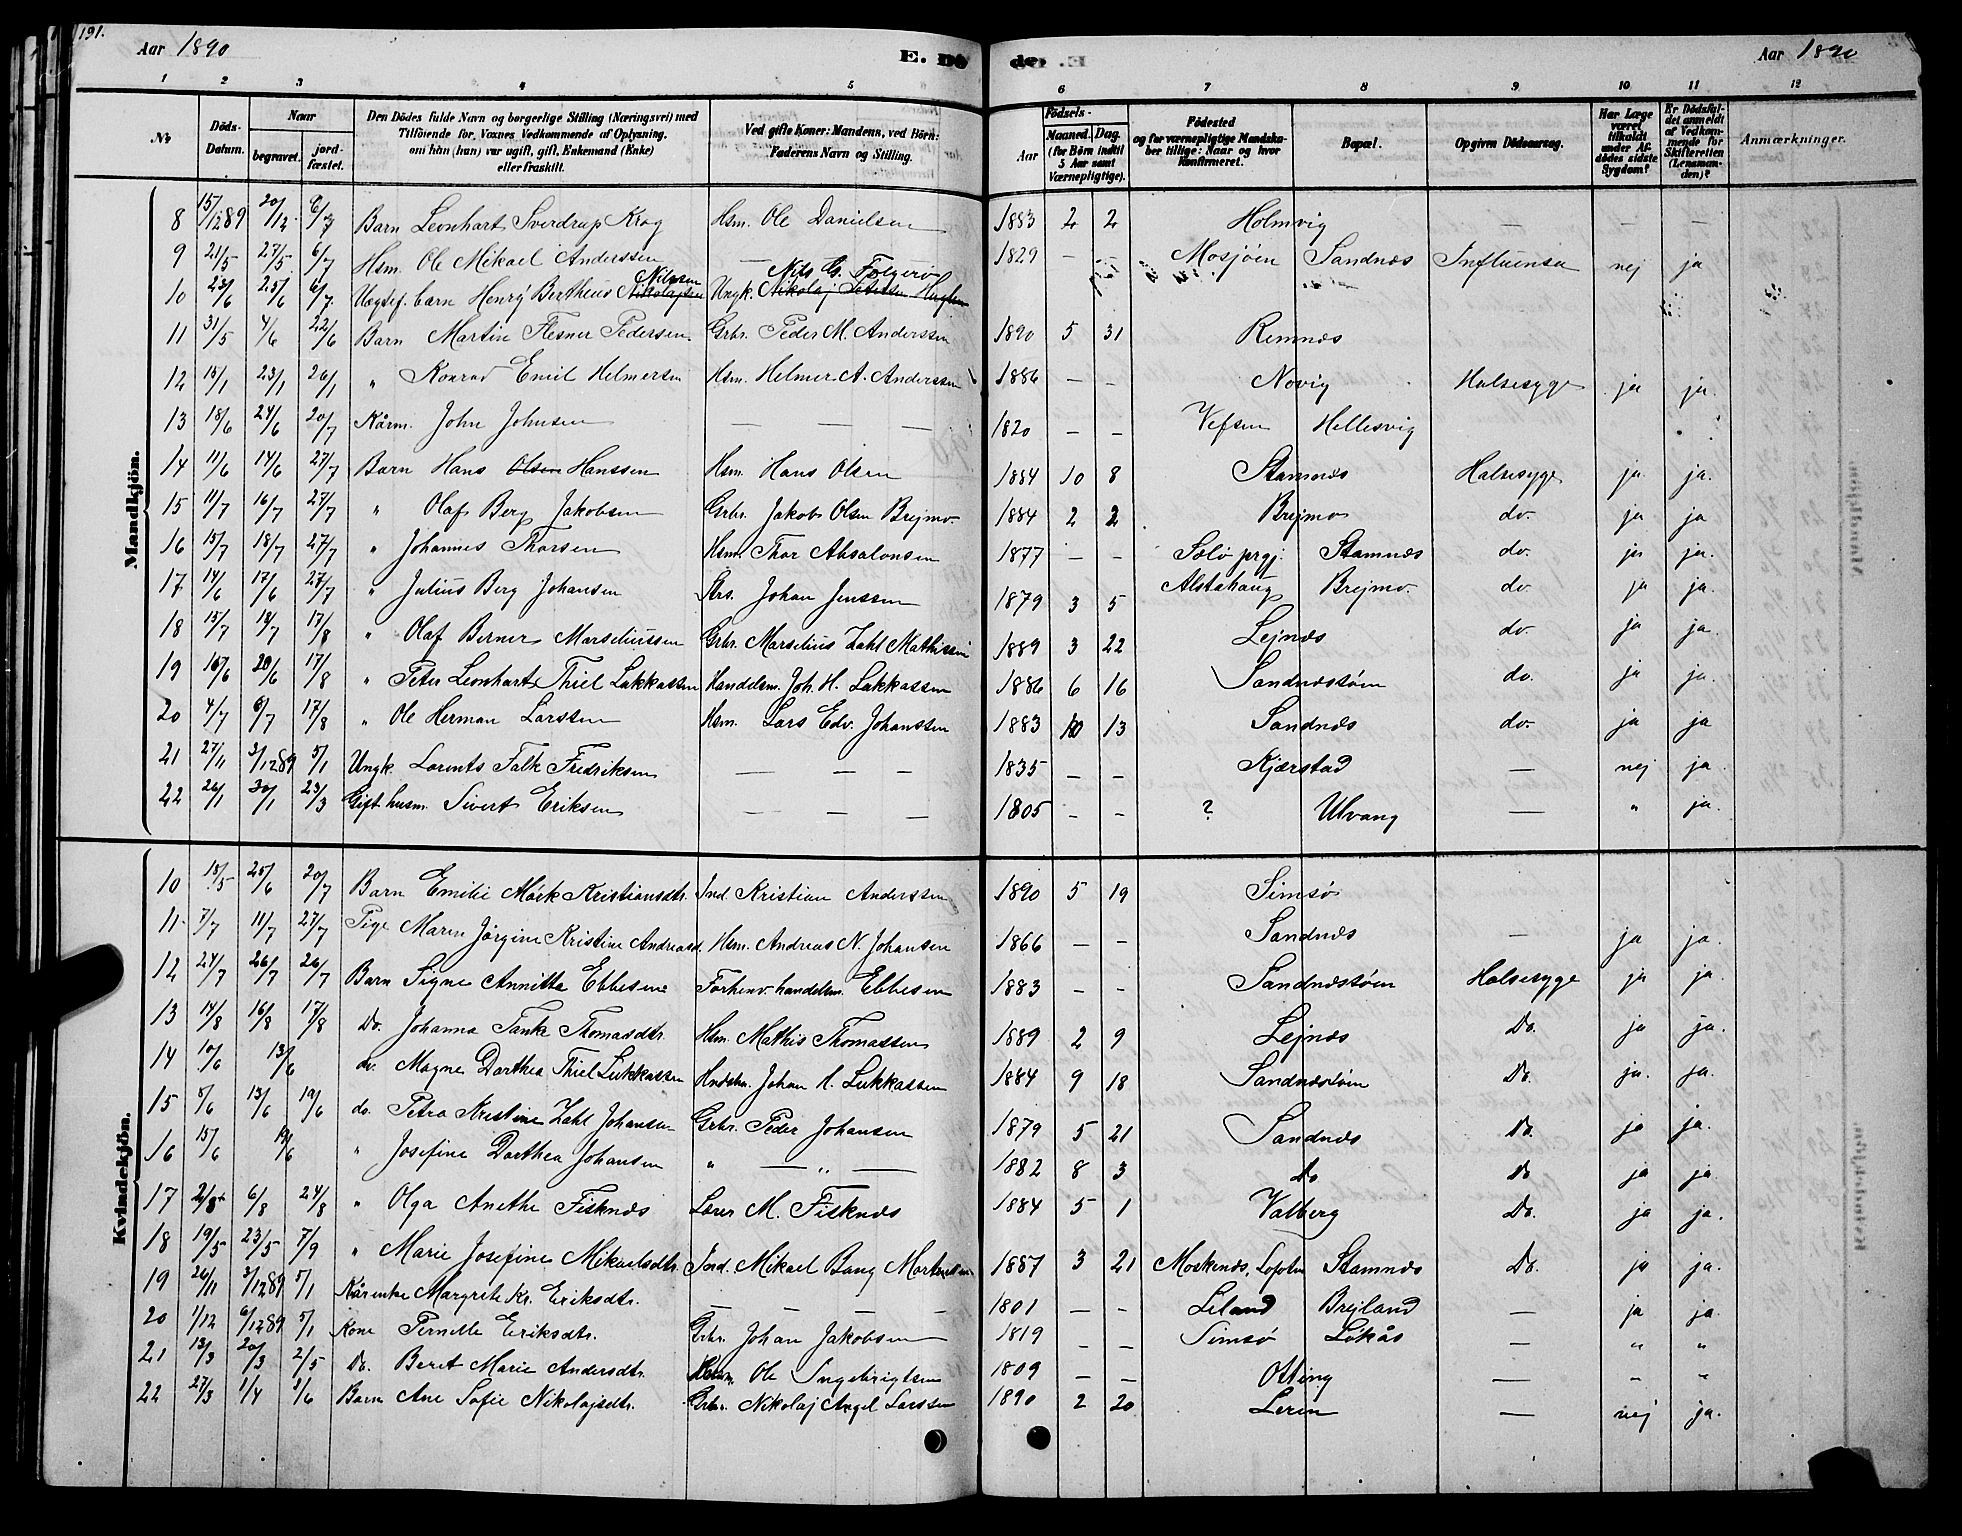 191.
Aar 1890 E. Dö de. Aar 1890
1 2 3 4 5 6 7 8 9 10 11 12
No. Döds-Datum. Naar begravet. jord-fæstet. Den Dödes fulde Navn og borgerlige Stilling (Næringsvei) med Tilföiende for Voxnes Vedkommende af Oplysning, om hån (hun) var ugift, gift, Enkemand (Enke) eller fraskilt. Ved gifte Koner: Mandens, ved Börn: Faderens Navn og Stilling. Födsels- Aar Maaned. Dag. (for Börn indtil 5 Aar samt Værnepligtige). Födested og for værnepligtige Mandskaber tillige: Naar og hvor konfirmeret. Bopæl. Opgiven Dödsaarsag. Har Læge været tilkaldt under Afdödes sidste Sygdom? Er Dödsfaldet anmeldt af Vedkommende for Skifteretten (Lensmanden)? Anmærkninger.
Mandkjön.
8 15/12 89 20/12 6/7 Barn Leonhart Sverdrup Krog Hsm. Ole Danielsen 1883 2 2 Holmvig — — —
9 21/5 27/5 6/7 Hsm. Ole Mikael Anderssen — 1829 — — Mosjöen Sandnæs Influensa nej ja
10 23/6 25/6 6/7 Uægtef. barn Henry Bertheus Nikolajsen Nilssen Ungk. Nikolaj Petersen Nils G.
11 31/5 4/6 22/6 Barn Martin Flesner Pedersen Grbr. Peder M. Anderssen 1890 5 31 Remnæs
12 15/1 23/1 26/1 " Konrad Emil Helmersen Hsm. Helmer A. Anderssen 1886 — — Novig Halsesyge ja ja.
13 18/6 24/6 20/7 Kårm. John Johnsen — — — 1820 — — Vefsen Hellesvig
14 11/6 14/6 27/7 Barn Hans Olsen Hanssen Hsm. Hans Olsen 1884 10 8 Stamnæs Halsesyge ja ja.
15 11/7 16/7 27/7 " Olaf Berg Jakobsen Grbr. Jakob Olsen Brejmo. 1884 2 2 Brejmo do. ja ja
16 15/7 18/7 27/7 " Johannes Thorsen Hsm. Thor Absalonsen 1877 — — Solö prgj. Stamnæs do. ja ja.
17 14/6 17/6 27/7 " Julius Berg Johansen Strs. Johan Jenssen 1879 3 5 Alstahaug Brejmo. do. ja ja.
18 15/7 18/7 17/8 " Olaf Berner Marseliussen Grbr. Marselius Zahl Mathissen 1889 3 22 Lejnæs do. ja ja.
19 16/6 20/6 17/8 " Peter Leonhart Thiel Lukkassen Handelsm. Joh. H. Lukkassen 1886 6 16 Sandnæstøen do. ja ja.
20 4/7 8/7 17/8 " Ole Herman Larssen Hsm. Lars Edv. Johanssen 1883 10 13 Sandnæs do. ja ja
21 27/11 3/12 89 5/1 Ungk. Lorents Falk Fredriksen — — — 1835 — — Kjærstad — nej ja.
22 26/1 30/1 23/3 Gift husm. Sivert Eriksen — — — 1805 — — ? Ulvang — " ja.
Kvindekjön.
10 18/5 25/6 20/7 Barn Emilie Mörk Kristiansdtr. Ind. Kristian Anderssen 1890 5 19 Simsø
11 7/7 11/7 27/7 Pige Maren Jörgine Kristine Andreasd. Hsm. Andreas N. Johansen 1866 — — Sandnæs — ja ja.
12 24/7 26/7 26/7 Barn Signe Annitta Ebbesen Forhenv. handelsm. Ebbesen 1883 — — Sandnæstøen Halsesyge ja ja.
13 14/8 16/8 17/8 Do. Johanna Tank Thomasdtr. Hsm. Mathis Thomassen 1889 2 9 Lejnæs Do. ja ja.
14 10/6 13/6 do. Magna Dorthea Thiel Lukkassen Hndsm. Johan H. Lukkassen 1884 9 18 Sandnæstøen Do. ja. ja.
15 8/6 13/6 19/6 do. Petra Kristine Zahl Johansen Grbr. Peder Johansen 1879 5 21 Sandnæs Do. ja ja.
16 15/6 19/6 " Josefine Dorthea Johansen " — " — 1882 8 3 Do Do ja ja.
17 2/8 6/8 24/8 " Olga Anethe Fisknæs Lærer M. Fisknæs 1884 5 1 Valberg Do. ja ja.
18 19/5 23/5 7/9 " Marie Josefine Mikaelsdtr. Ind. Mikael Bang Mortensen 1887 3 21 Moskenæs, Lofoten Stamnæs Do. ja ja.
19 26/11 3/12 89 5/1 Kårenke Margrete Kr. Eriksdtr. — — — — 1801 — — Leland Brejland — ja ja.
20 1/12 6/12 89 5/1 Kone Pernille Eriksdtr. Grbr. Johan Jakobsen 1819 — — Simsø Lökås — " "
21 13/3 20/3 2/5 Do. Beret Marie Andersdtr. Ole Ingebrigtsen 1809 — — Otting — " "
22 27/3 1/4 1/6 Barn Ane Sofie Nikolajsdtr. Grbr. Nikolaj Angel Larssen 1890 2 20 Leren — nej ja.